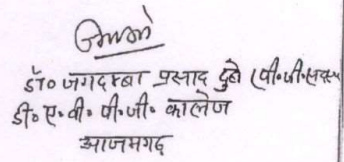 डॉ० जगदम्बा प्रसाद दुबे (पी.जी.
डी० ए० वी० पी० जी० कालेज
आजमगढ़